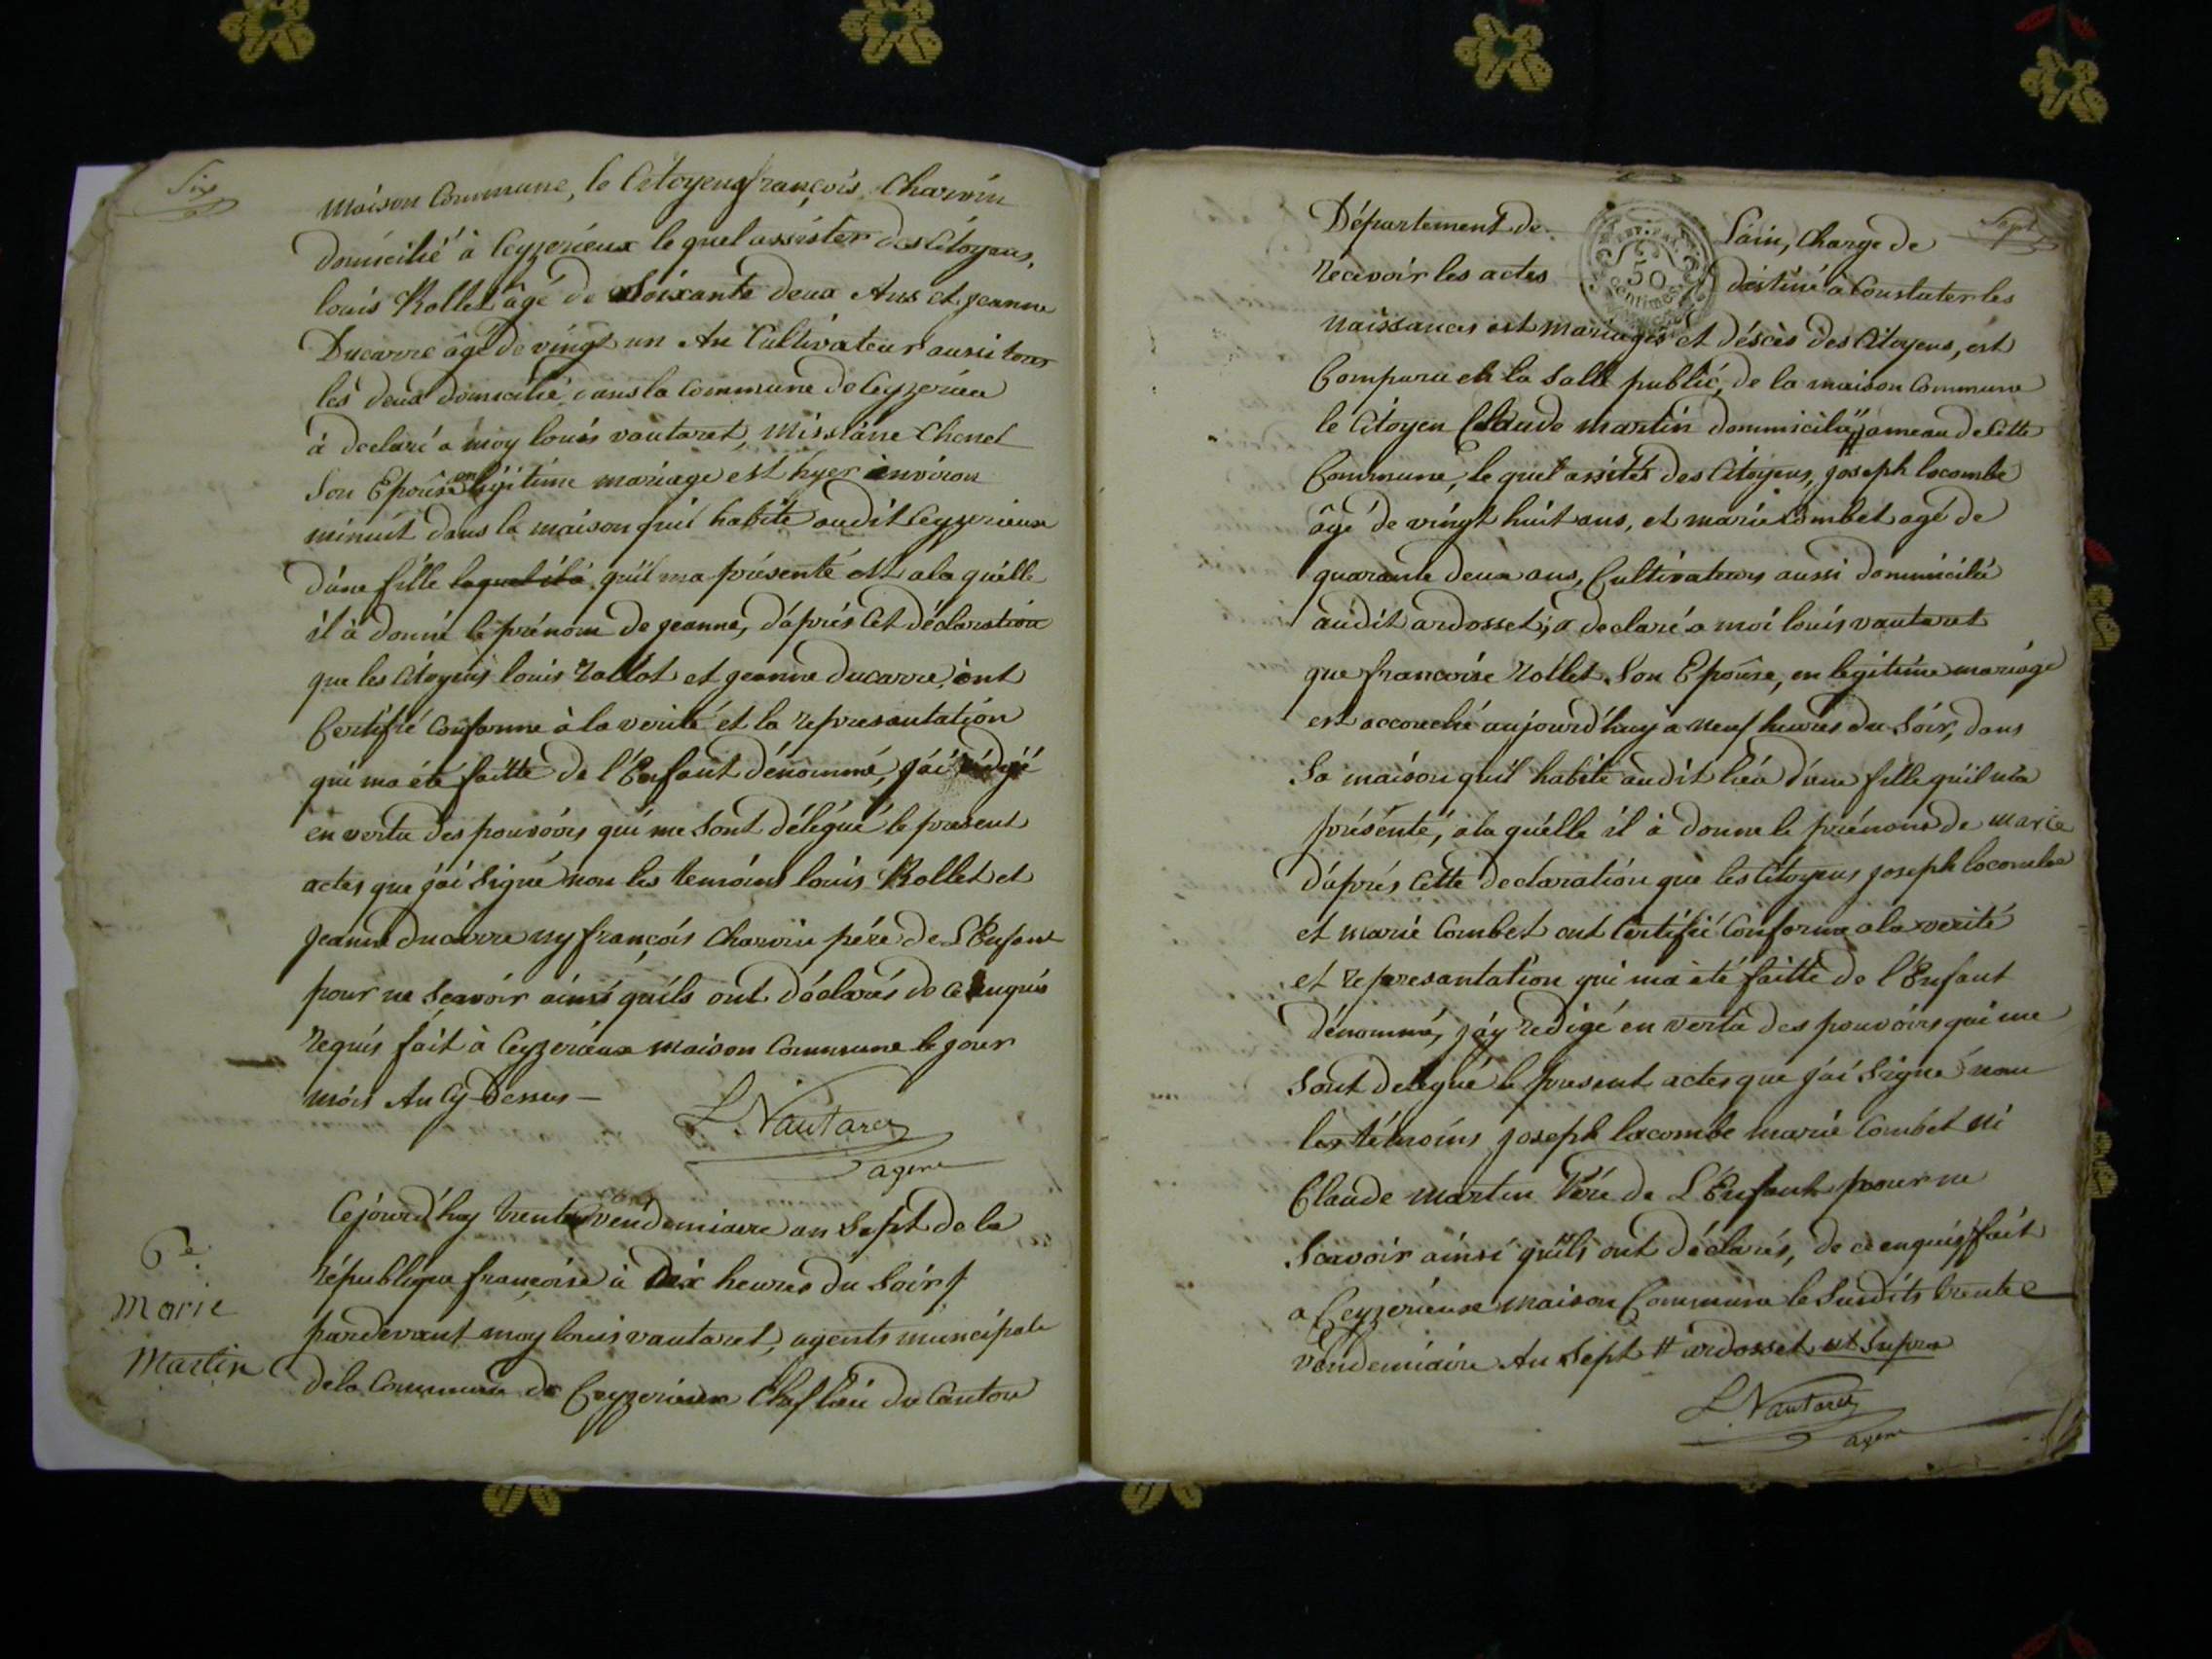 Six
maison Commune, le Citoyens françois Charvin
domicilié à Ceyzerieux le quel assister des Citoyens,
louis Rollet âgé de Soixante deux Ans et jeanne
Ducarre âgé de vingt un An Cultivateur aussi tous
les deux domicilié dans la Commune de Ceyzerieu
à declaré a moy louis vautaret, Chenet
Son Epouse en legitime mariage est hyer environ
minuit dans la maison qui habite audit Ceyzerieux
d'une fille laquel il a qu'il ma présenté est a la quélle
il à donné le prénom de jeanne, d'aprés Cet déclaration
que les Citoyens louis rollot et jeanne ducarre, ont
Certifié conforme à la verité et la represantation
qui ma été faitte de l'Enfant dénommé, j'ai rédigé
en vertu des pouvoirs qui me sont délégué le present
actes que j'ai Signé non les temoins louis Rollet et
jeanne ducarre ny françois Charvin pére de L'Enfant
pour ne Scavoir ainsi quils ont déclarés de ce enquis
requis fait à Ceyzerieux maison Commune le jour
mois An Cy-Dessus -
L. Vautaret
agent
6e.
Marie
Martin
Cejourd'huy trente vendemiaire an Sept de la
République françoise à Dix heures du Soir
pardevant moy louis vautaret, agents muncipale
de la Commune de Ceyzerieux Chef lieu du Canton
Sept
Département de Lain, Charge de
recevoir les actes destiné a Constater les
50
centimes
naissances est mariages et déscès des Citoyens, est
Comparu en la Salle public, de la maison Commune
le Citoyen Claude martin dommicilié # jameau de Cette
Commune, le quel assités des Citoyens, joseph lacombe
âgé de vingt huit ans, et marie Combet agé de
quarante deux ans, Cultivateurs aussi dommicilié
audit ardosset, a declaré a moi louis vautaret
que francoise rollet Son Epouse, en legitime mariage
est accouché aujourd'huy a neuf heures du Soir, dans
Sa maison qu'il habite audit lieu d'une fille qu'il m'a
présenté, a la quélle il à donne le prénoms de marie
d'aprés Cette declaration que les Citoyens joseph lacombe
et marie Combet ont Certifié Conforme a la verité
et represantation qui ma été faitte de l'Enfant
dénommé, j'ay redigé en vertu des pouvoirs qui me
Sont delegué le present actes que j'ai Signé non
les témoins joseph lacombe marie Combet ni
Claude martin Pére de L'Enfant pour ne
Scavoir ainsi quils ont déclarés, de ce enquis fait
a Ceyzerieux maison Commune le Susdits trente
vendemiaire An Sept # ardosset ut Supra
L. Vautaret
agent